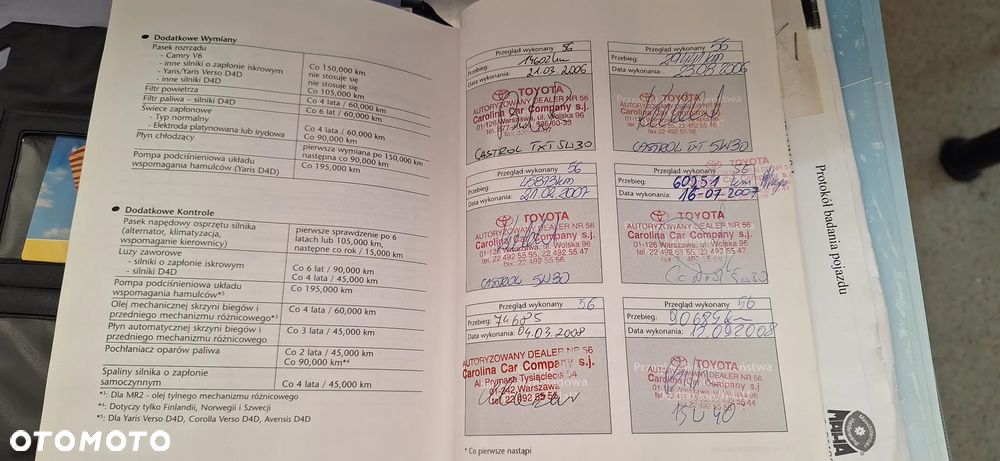 ● Dodatkowe Wymiany
Pasek rozrządu
- Camry V6
- inne silniki o zapłonie iskrowym
- Yaris/Yaris Verso D4D
- inne silniki D4D
Co 150,000 km
nie stosuje się
nie stosuje się
Co 105,000 km
Filtr powietrza
Co 4 lata / 60,000 km
Filtr paliwa – silniki D4D
Co 6 lat / 60,000 km
Świece zapłonowe
- Typ normalny
- Elektroda platynowana lub irydowa
Co 4 lata / 60,000 km
Co 90,000 km
Płyn chłodzący
pierwsza wymiana po 150,000 km
następna co 90,000 km
Pompa podciśnieniowa układu
wspomagania hamulców (Yaris D4D)
Co 195,000 km
● Dodatkowe Kontrole
Pasek napędowy osprzętu silnika
(alternator, klimatyzacja,
wspomaganie kierownicy)
pierwsze sprawdzenie po 6
latach lub 105,000 km,
następne co rok / 15,000 km
Luzy zaworowe
- silniki o zapłonie iskrowym
- silniki D4D
Co 6 lat / 90,000 km
Co 4 lata / 45,000 km
Pompa podciśnieniowa układu
wspomagania hamulców*⁵
Co 195,000 km
Olej mechanicznej skrzyni biegów i
przedniego mechanizmu różnicowego*³
Co 4 lata / 60,000 km
Płyn automatycznej skrzyni biegów i
przedniego mechanizmu różnicowego
Co 3 lata / 45,000 km
Pochłaniacz oparów paliwa
Co 2 lata / 45,000 km
Co 90,000 km*⁴
Spaliny silnika o zapłonie
samoczynnym
Co 4 lata / 45,000 km
*³: Dla MR2 - olej tylnego mechanizmu różnicowego
*⁴: Dotyczy tylko Finlandii, Norwegii i Szwecji
*⁵: Dla Yaris Verso D4D, Corolla Verso D4D, Avensis D4D
Przegląd wykonany 56
Przebieg: 14602 km
Data wykonania: 21.03.2006
TOYOTA
AUTORYZOWANY DEALER NR 56
Carolina Car Company s.j.
01-126 Warszawa, ul. Wolska 96
CASTROL TXT 5W30
Przegląd wykonany 56
Przebieg:
Data wykonania:
TOYOTA
AUTORYZOWANY DEALER NR 56
Carolina Car Company s.j.
01-126 Warszawa, ul. Wolska 96
fax 22 492 55 56
CASTROL TXT 5W30
Przegląd wykonany 56
Przebieg:
Data wykonania: 21.02.2007
TOYOTA
AUTORYZOWANY DEALER NR 56
Carolina Car Company s.j.
01-126 Warszawa, ul. Wolska 96
tel. 22 492 55 55, 22 492 55 47
fax. 22 492 55 56
CASTROL 5W30
Przegląd wykonany 56
Przebieg: 60251 km
Data wykonania: 16-07-2007
TOYOTA
TOYOTA
AUTORYZOWANY DEALER NR 56
Carolina Car Company s.j.
01-126 Warszawa, ul. Wolska 96
Przegląd wykonany 56
Przebieg: 74685
Data wykonania: 04.03.2008
AUTORYZOWANY DEALER NR 56
Carolina Car Company s.j.
Al. Prymasa Tysiąclecia 54
01-242 Warszawa
tel. 22 492 55 55
Przegląd wykonany 56
Przebieg: 90684 km
Data wykonania:
TOYOTA
AUTORYZOWANY DEALER NR 56
Carolina Car Company s.j.
* Co pierwsze nastąpi
Protokół badania pojazdu
MAHA
OTOMOTO